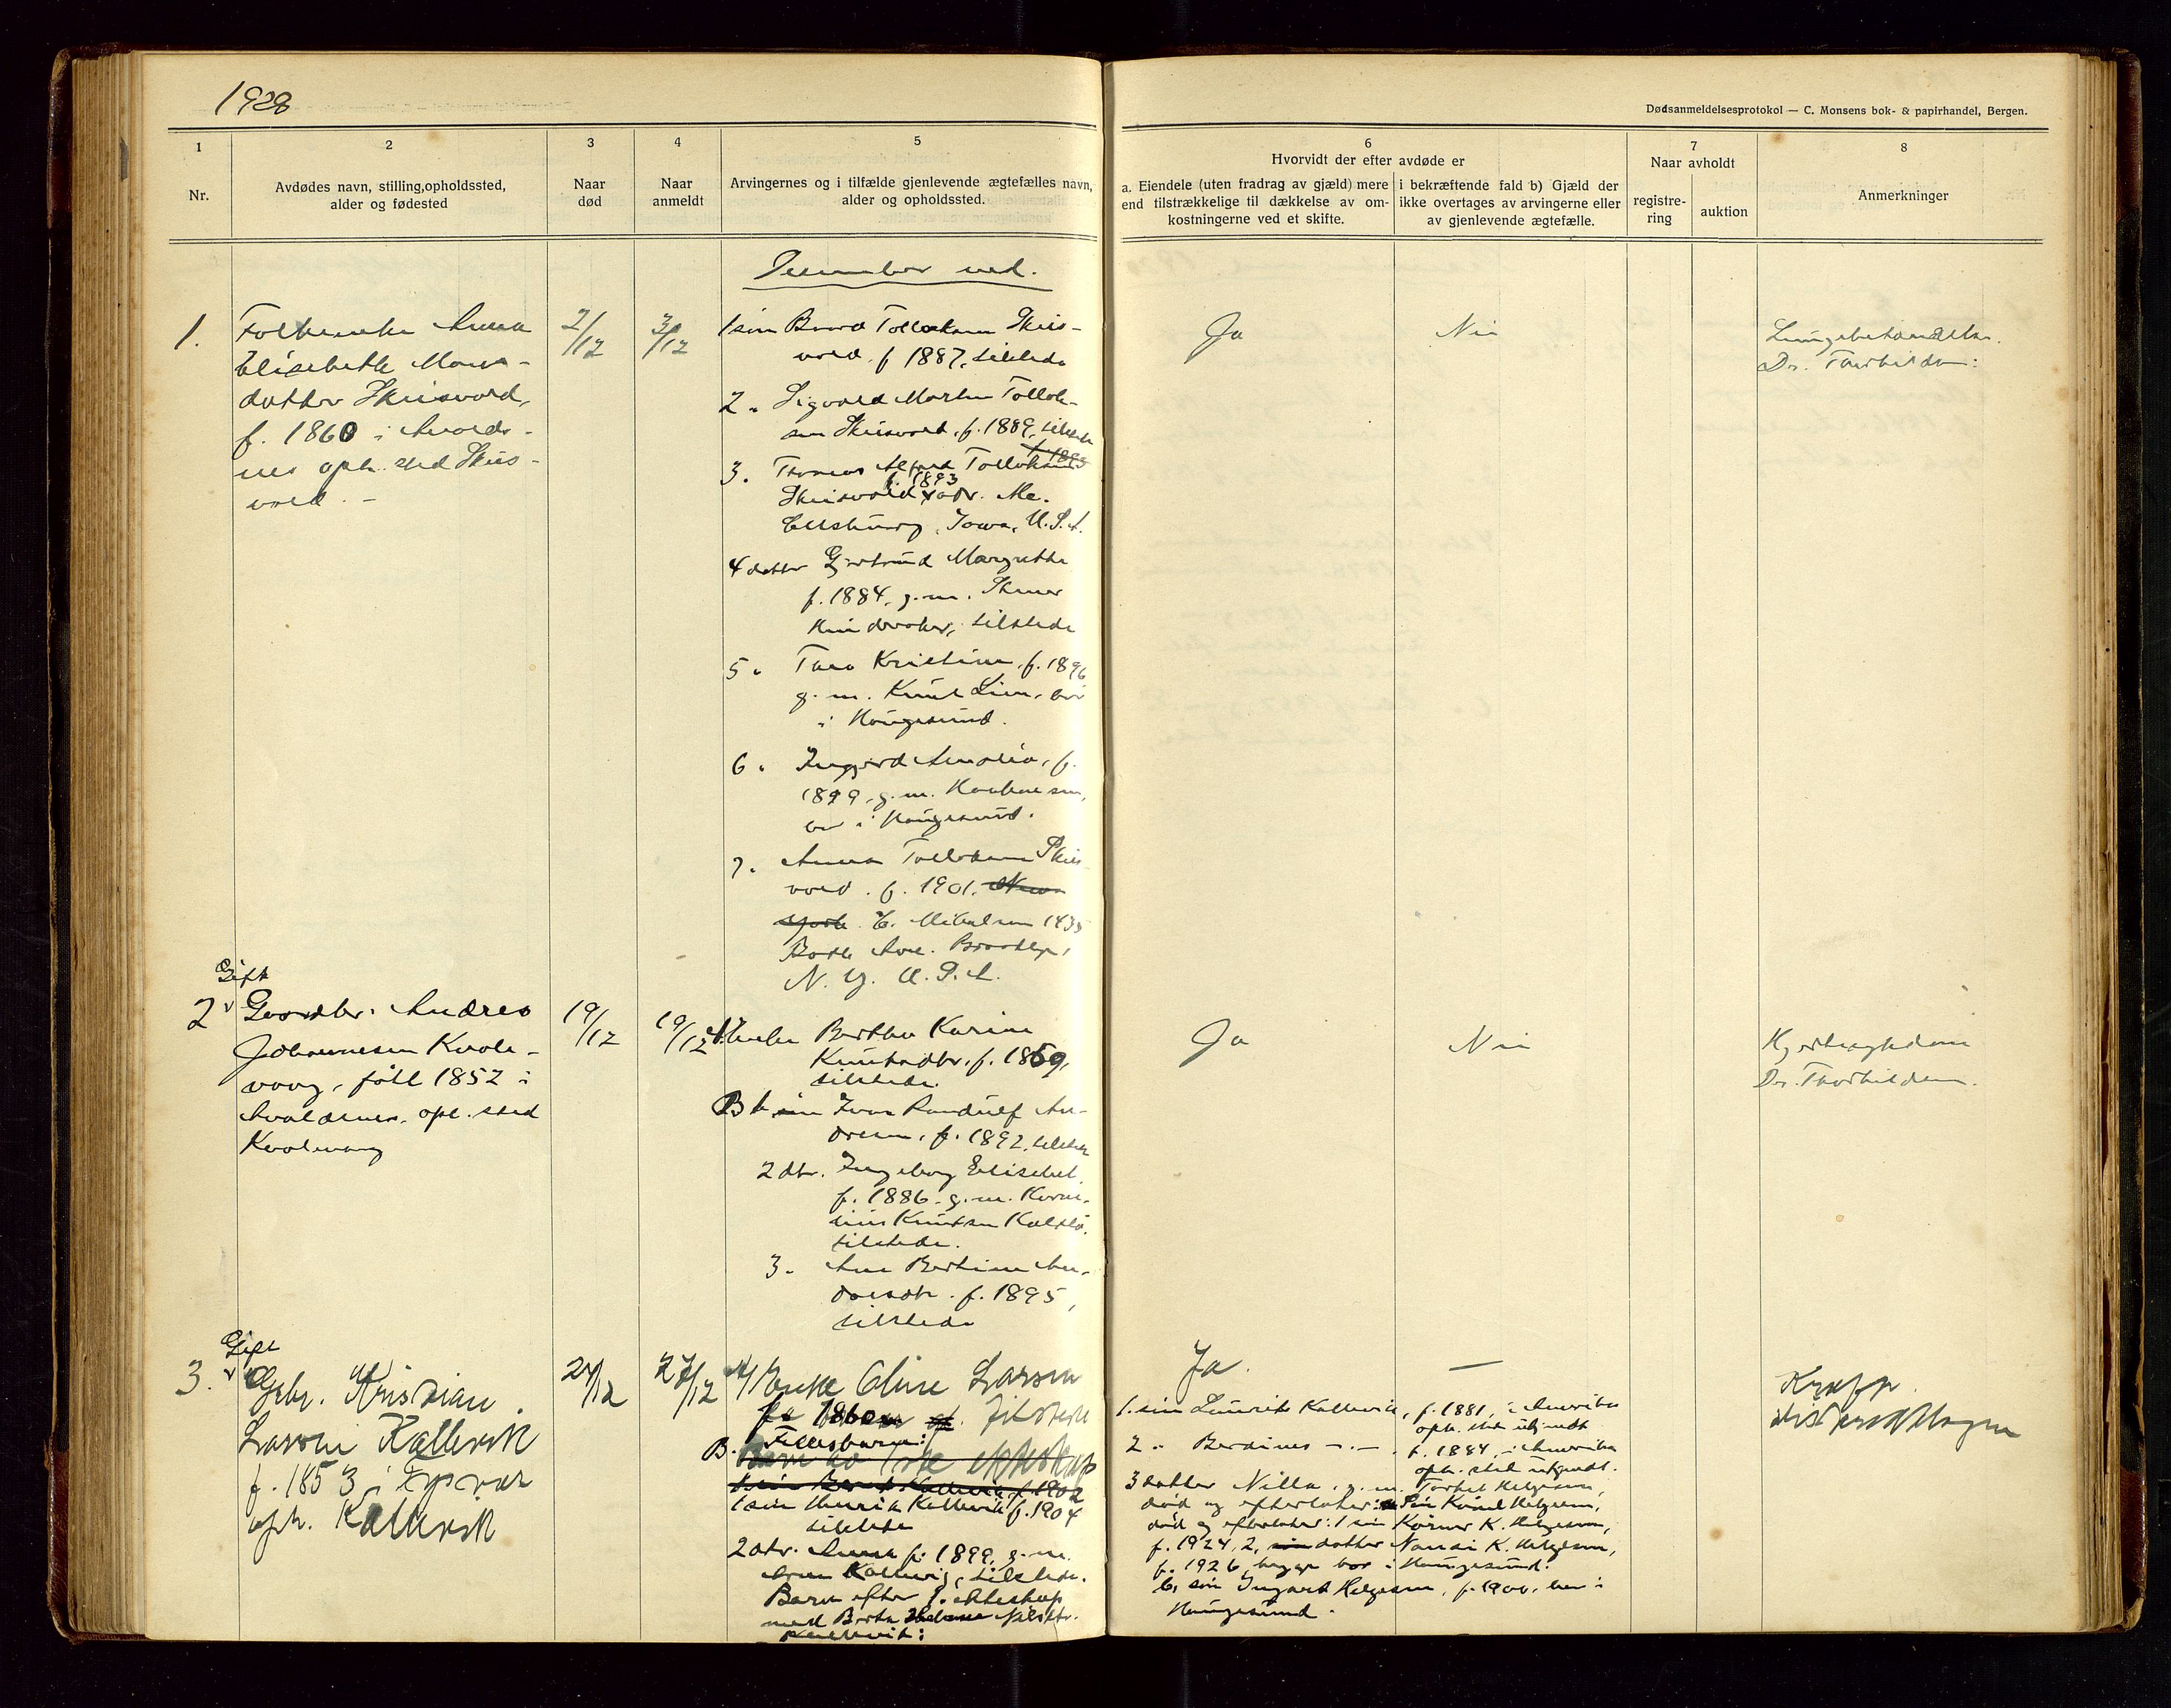 1928
Dødsanmeldelsesprotokol — C. Monsens bok- & papirhandel, Bergen.
1
Nr.
2
Avdødes navn, stilling, opholdssted,
alder og fødested
3
Naar
død
4
Naar
anmeldt
5
Arvingernes og i tilfælde gjenlevende ægtefælles navn,
alder og opholdssted.
6
Hvorvidt der efter avdøde er
a. Eiendele (uten fradrag av gjæld) mere
end tilstrækkelige til dækkelse av om-
kostningerne ved et skifte.
i bekræftende fald b) Gjæld der
ikke overtages av arvingerne eller
av gjenlevende ægtefælle.
7
Naar avholdt
registre-
ring
auktion
8
Anmerkninger
December md.
1.
Anna
Elisabeth Mons-
datter Skeisvold,
f. 1860 i Avalds-
nes oph. sted Skeis-
vold. -
2/12
3/12
1 søn Tolleksen Skeis-
vold, f 1887, tilstede
2 " Sigvald Martin Tollek-
sen Skeisvold, f. 1889, tilstede
3. Thomas Alfred Tolleksen
f. 1893
Skeisvold adr. Mc.
Ellsburg, Iowa, U.S.A.
4 datter Gjertrud Margrethe
f. 1884, g.m.
tilstede
5 " Thea Kristine, f. 1896
g. m. Knut Lien, bor
i Haugesund.
6 " Amalia, f.
1899, g.m.
bor i Haugesund.
7. Anna Tolleksen Skeis-
vold. f. 1901. New
York 1435
Ave. Brooklyn,
N. Y. U.S.A.
Ja
Nei
Lungebetændelse.
Dr.
Gift
2 Gaardbr. Andreas
Johannesen Kvale-
vaag, født 1852 i
Avaldsnes, oph. sted
Kvalevaag
19/12
19/12
A. Enke Berthe Karine
Knutsdtr. f. 1859,
tilstede.
B 1 søn Ivar Randulf An-
dresen, f. 1892, tilstede
2 dtr. Ingeborg Elisabet
f. 1886. g. m. Korne-
lius Knutsen Kallstø
tilstede.
3. Ane Bertine An-
dresdtr. f. 1895,
tilstede
Ja
Nei
Hjertesygdom
Dr.
Gift
3. Gbr. Kristian
Larsen Kallevik
f. 1853 i Tysvær
oph. Kallevik
24/12
27/12
A/ Enke Oline Larsen
f. 1860 tilstede
B. Fellesbarn:
1 søn Henrik Kallevik f. 1904
tilstede
2 dtr. Anna f. 1899, g. m.
Kallevig, tilstede.
Barn efter 1. ekteskap
med Berta Helene Nilsdtr.
Kallevik:
Ja.
—
1. søn Laurits Kallevik, f. 1881, i Amerika
oph. sted ubekjendt
2 " Berdines —"— f. 1884, i Amerika
oph. sted ubekjendt.
3 datter Nilla, g. m. Torkel Helgesen,
død og efterlater: a Søn Knud Helgesen,
død og efterlater: 1 søn K. Helgesen,
f. 1924, 2, datter K. Helgesen,
f. 1926, begge bor i Haugesund.
b, søn Ingvart Helgesen, f. 1900, bor i
Haugesund.